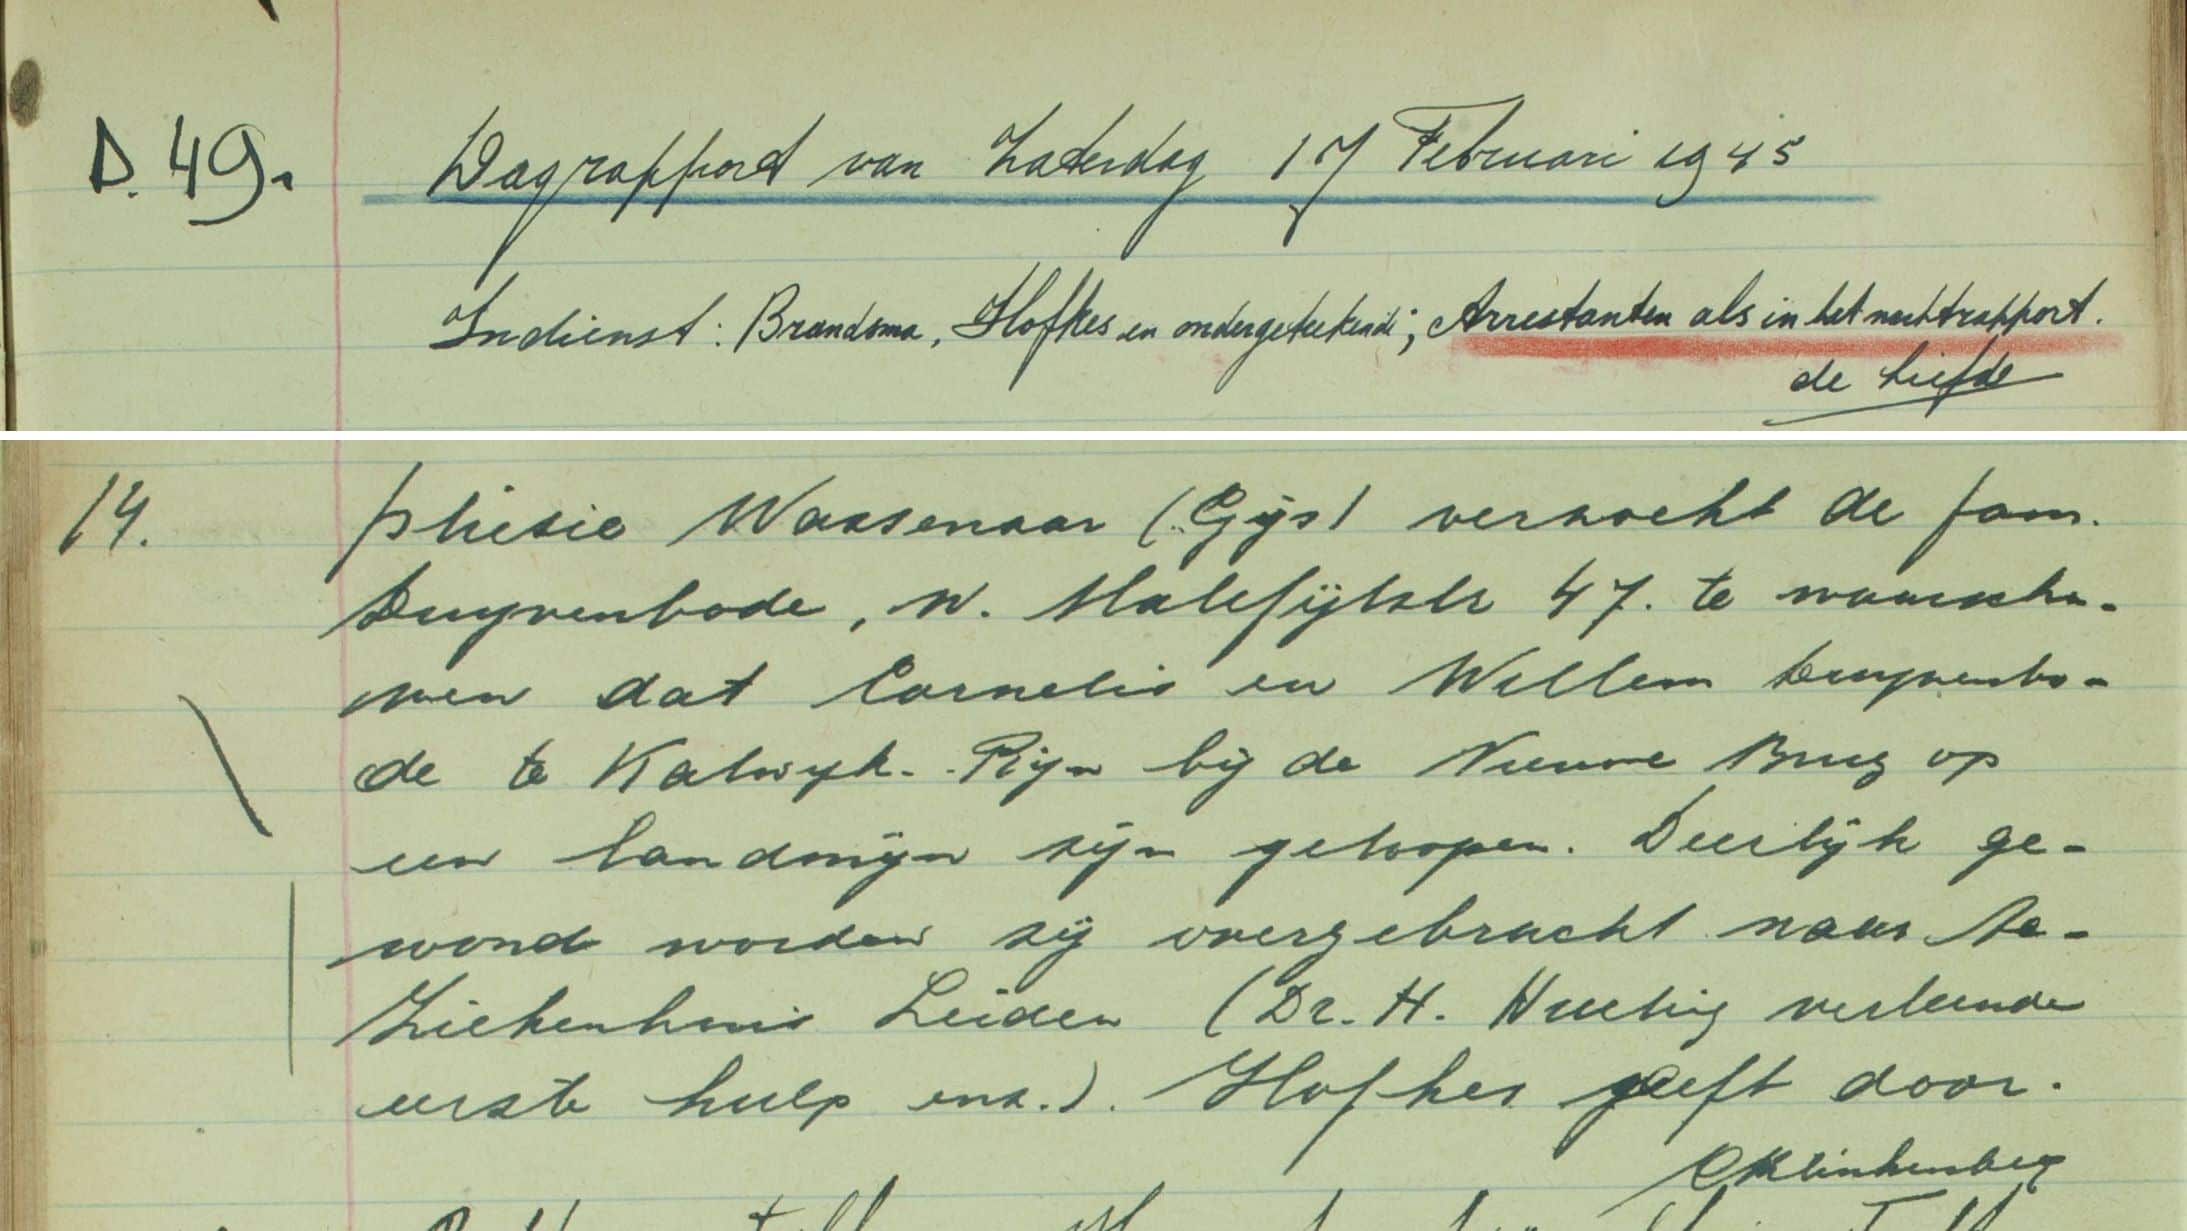 D. 49. Dagrapport van Zaterdag 17 Februari 1945
Indienst: Brandsma, Hofkes en ondergeteekende; Arrestanten als in het nachtrapport.
de Liefde
14. plitie Wassenaar (Gijs) verzocht de fam.
Duyvenbode, W. Malefijtstr 47. te waarschu-
wen dat Cornelis en Willem Duyvenbo-
de te Katwyk-Rijn bij de Nieuwe Brug op
een landmijn zijn geloopen. Deerlijk ge-
wond worden zij overgebracht naar Ac-
Ziekenhuis Leiden (Dr. H. verleende
eerste hulp enz.). Hofkes geeft door.
CKlinkenberg